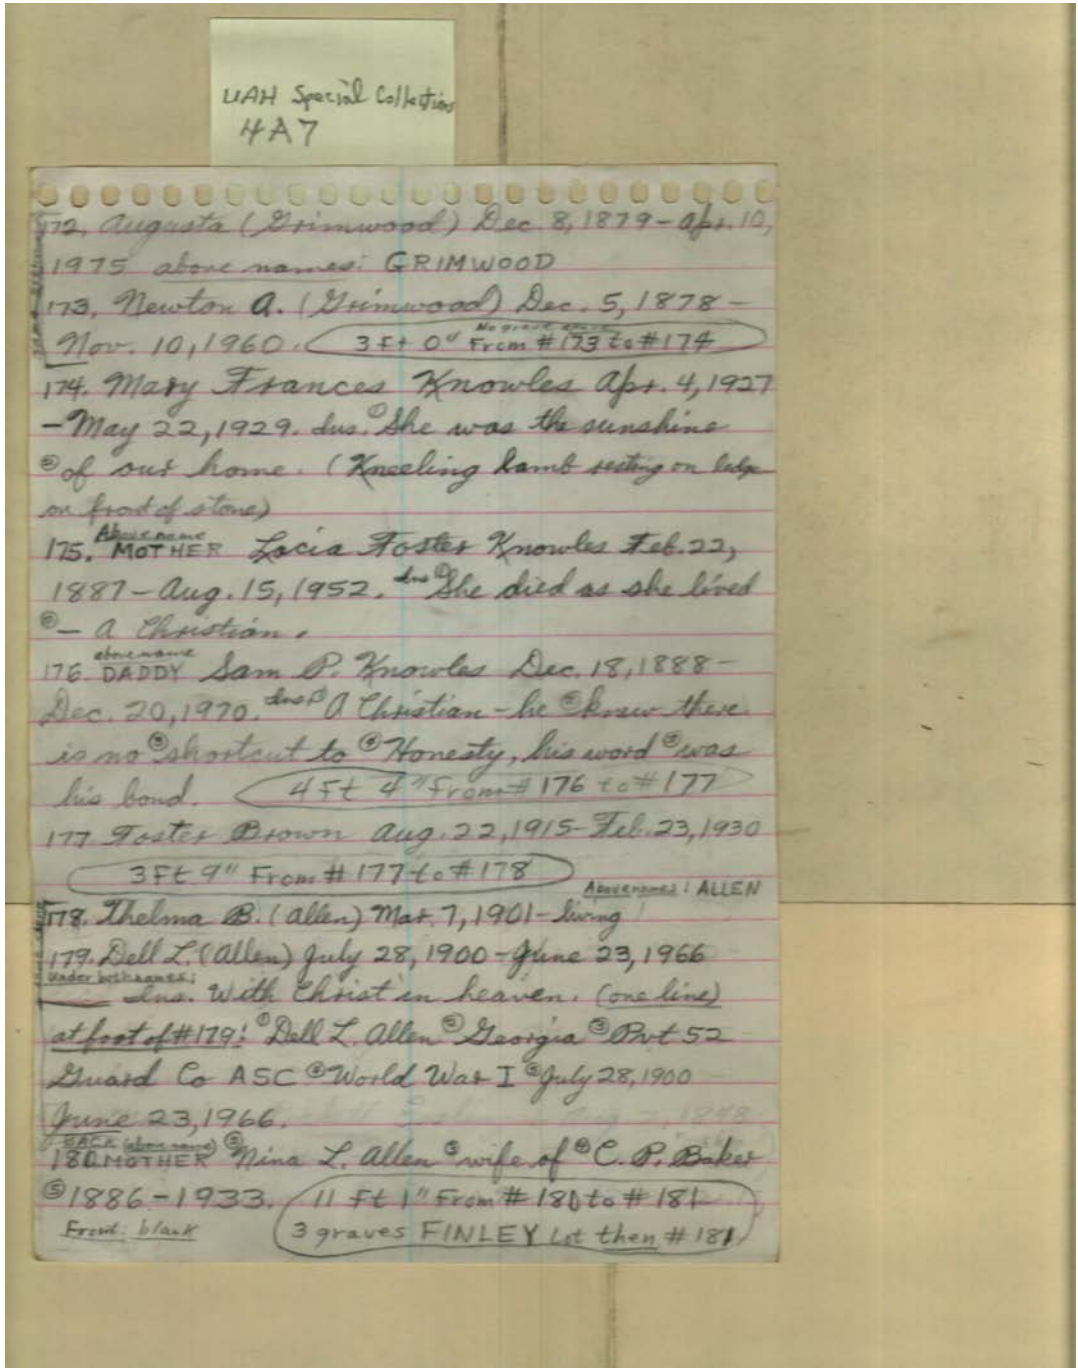 UAH Special Collections
4A7
172. Augusta (Grimwood) Dec. 8, 1879 - Apr. 10,
1975 above names: GRIMWOOD
173. Newton A. (Grimwood) Dec. 5, 1878 -
Nov. 10, 1960. No grave 3 Ft 0" From #173 to #174
174. Mary Frances Knowles Apr. 4, 1927
- May 22, 1929. Ins. ① She was the sunshine
② of our home. (Kneeling Lamb resting on ledge
on front of stone)
Above name
175. MOTHER Locia Foster Knowles Feb. 22,
1887 - Aug. 15, 1952. Ins ① She died as she lived
② - A Christian.
above name
176. DADDY Sam P. Knowles Dec. 18, 1888 -
Dec. 20, 1970. Ins ① A Christian - he ② knew there
is no ③ shortcut to ④ Honesty, his word ⑤ was
his bond. 4 Ft 4" From #176 to #177
177. Foster Brown Aug. 22, 1915 - Feb. 23, 1930
3 Ft 9" From #177 to #178
Above names: ALLEN
178. Thelma B. (Allen) Mar. 7, 1901 - living
179. Dell L. (Allen) July 28, 1900 - June 23, 1966
Under both names:
Ins. With Christ in heaven. (one line)
at foot of #179: ① Dell L. Allen ② Georgia ③ Pvt 52
Guard Co ASC ④ World War I ⑤ July 28, 1900
June 23, 1966.
BACK (above name)
180. MOTHER ② Nina L. Allen ③ wife of ④ C. P. Baker
⑤ 1886 - 1933. 11 Ft 1" From #180 to #181
Front: blank 3 graves FINLEY Lot then #181